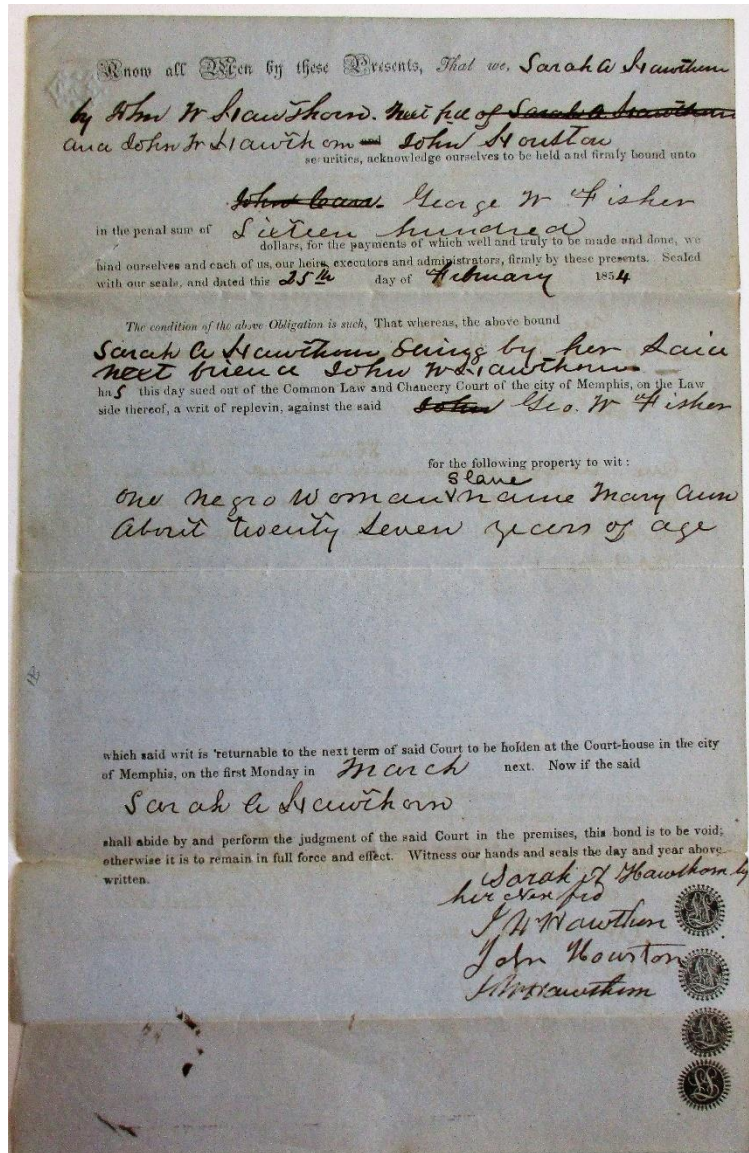 Know all Men by these Presents, That we, Sarah A Hawthorn
by John W Hawthorn. Next frd of Sarah A Hawthorn
and John W Hawthorn and John Houston
securities, acknowledge ourselves to be held and firmly bound unto
George W Fisher
in the penal sum of Sixteen hundred
dollars, for the payments of which well and truly to be made and done, we
bind ourselves and each of us, our heirs, executors and administrators, firmly by these presents. Sealed
with our seals, and dated this 25th day of February 1854
The condition of the above Obligation is such, That whereas, the above bound
Sarah A Hawthorn Suing by her said
next friend John W Hawthorn
has this day sued out of the Common Law and Chancery Court of the city of Memphis, on the Law
side thereof, a writ of replevin, against the said John Geo. W Fisher
for the following property to wit:
slave
One negro Woman name Mary Ann
About twenty Seven years of age
which said writ is returnable to the next term of said Court to be holden at the Court-house in the city
of Memphis, on the first Monday in March next. Now if the said
Sarah A Hawthorn
shall abide by and perform the judgment of the said Court in the premises, this bond is to be void;
otherwise it is to remain in full force and effect. Witness our hands and seals the day and year above
written.
Sarah A Hawthorn by
her Nex frd
J W Hawthorn
John Houston
J W Hawthorn
LS
LS
LS
LS